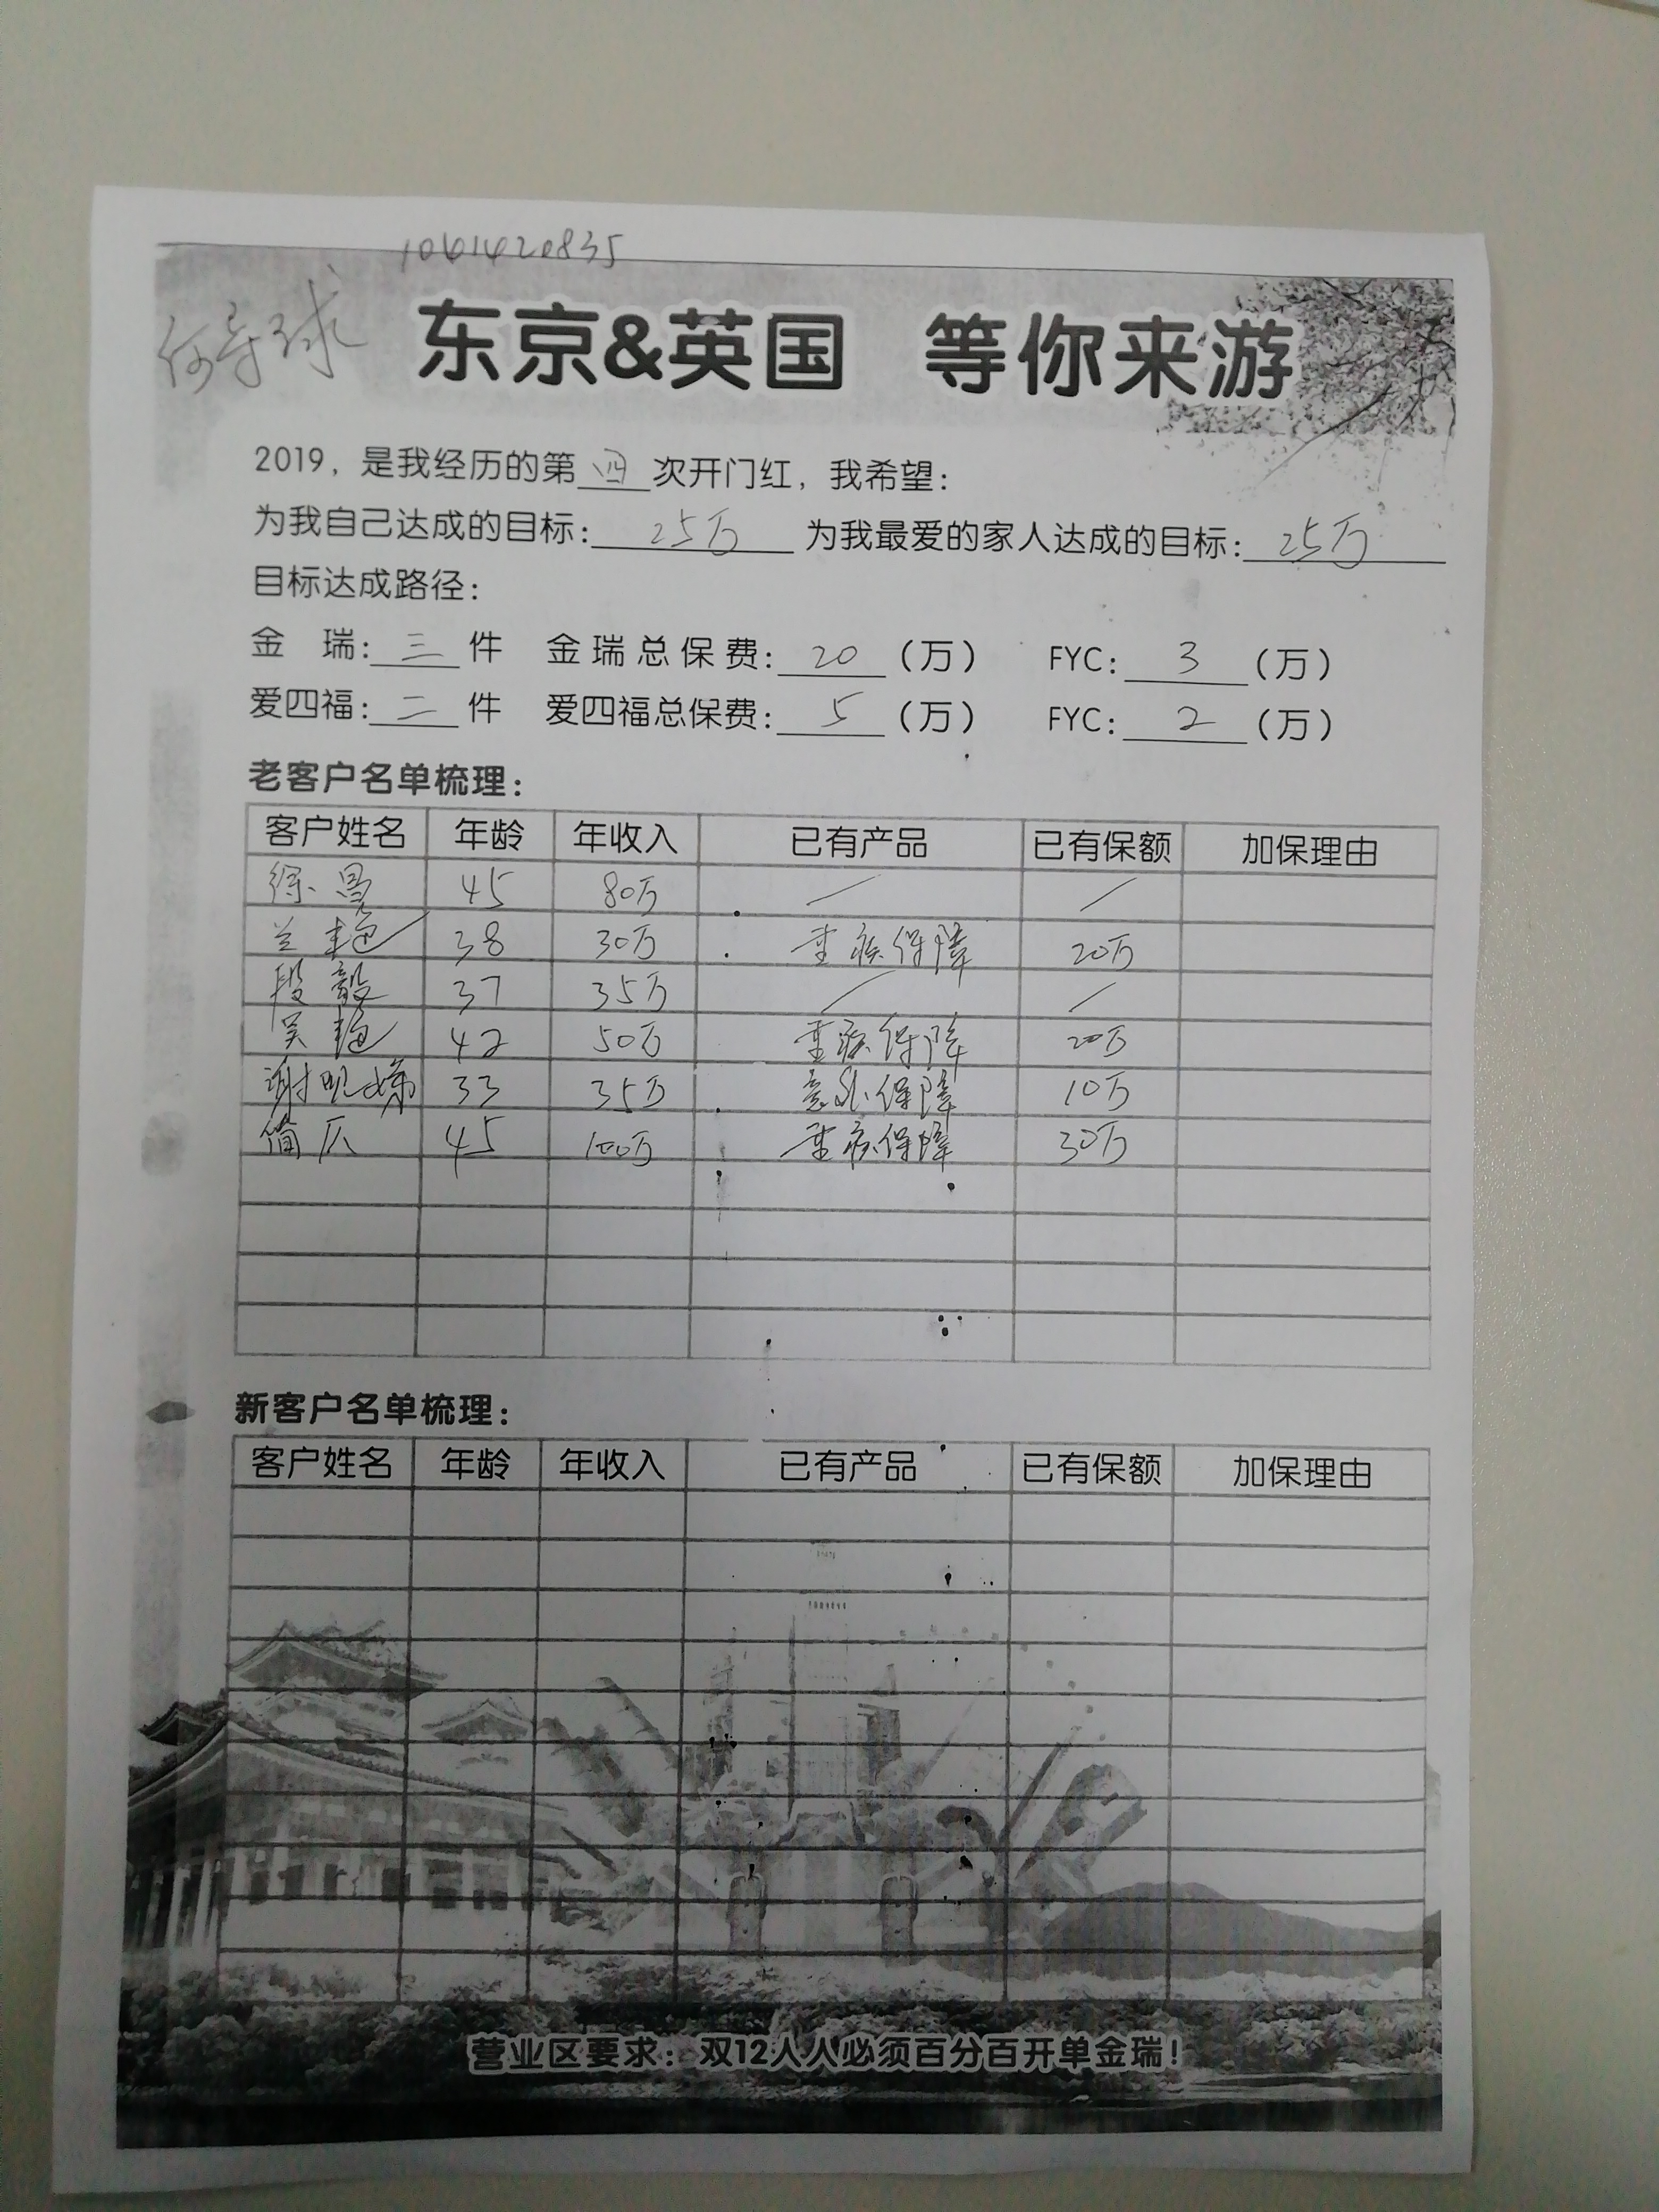 1061420835
何守球
东京&英国 等你来游
2019，是我经历的第四次开门红，我希望：
为我自己达成的目标：25万 为我最爱的家人达成的目标：25万
目标达成路径：
金 瑞：三 件 金瑞总保费：20（万） FYC：3（万）
爱四福：二 件 爱四福总保费：5（万） FYC：2（万）
老客户名单梳理：
客户姓名 年龄 年收入 已有产品 已有保额 加保理由
徐晃 45 80万 / /
兰艳 38 30万 重疾保障 20万
段毅 37 35万 / /
吴艳 42 50万 重疾保障 20万
谢明娣 33 35万 意外保障 10万
简 45 100万 重疾保障 30万
新客户名单梳理：
客户姓名 年龄 年收入 已有产品 已有保额 加保理由
营业区要求：双12人人必须百分百开单金瑞！